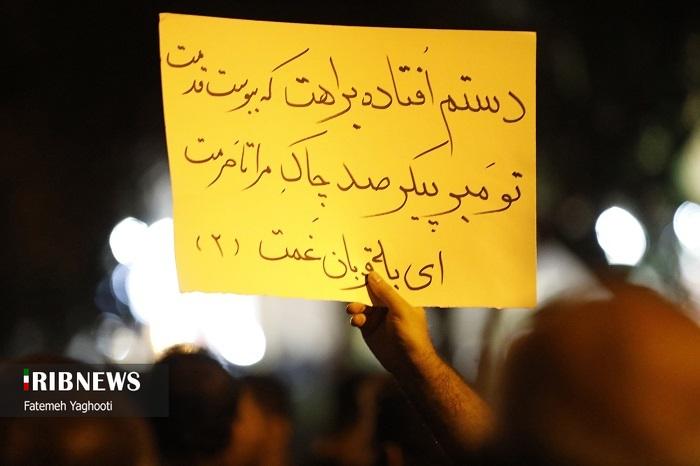 دستم اُفتاده براهت که ببوست قدمت
تو مَبر پیکر صد چاکِ مرا تا حَرمت
ای بقربان غَمت (۲)
IRIBNEWS
Fatemeh Yaghooti